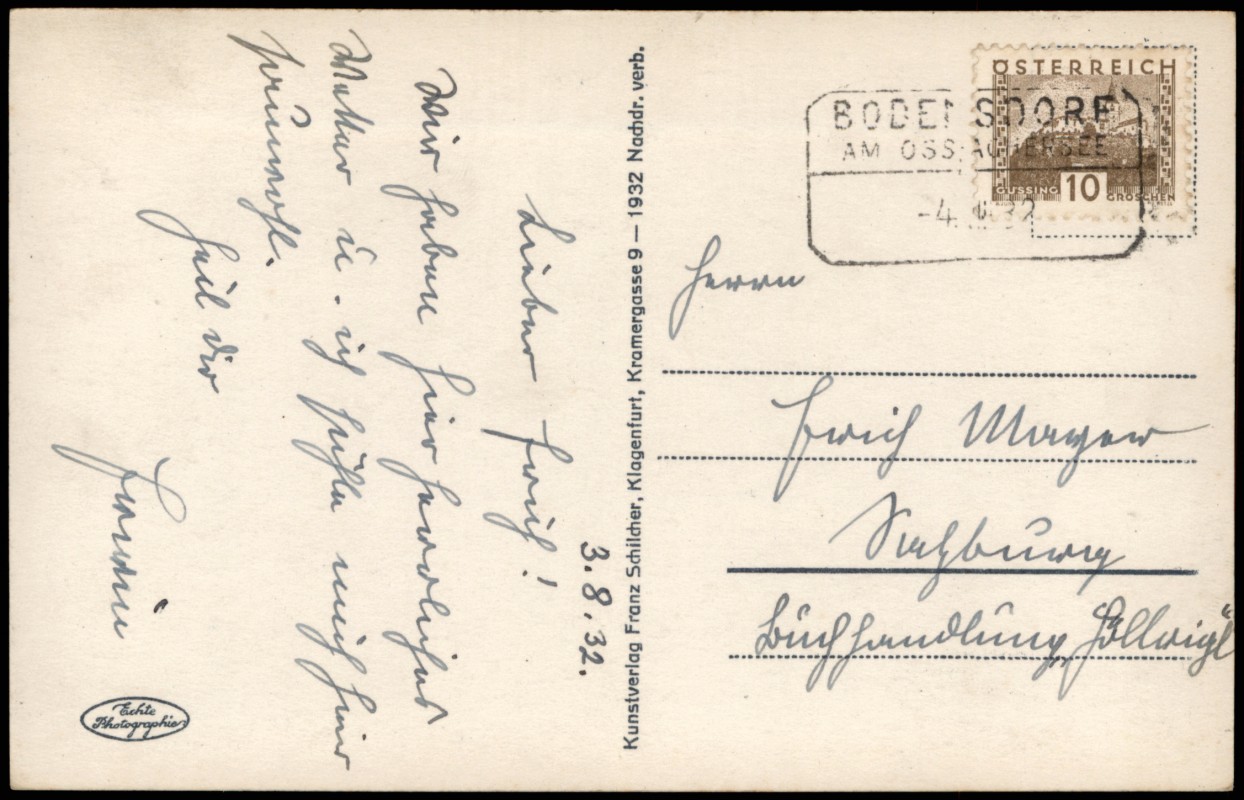 3.8.32.
Lieber Erich!
Wir haben hier herrliches
Wetter u. ich fühle mich hier
sauwohl.
Heil dir
Kunstverlag Franz Schilcher, Klagenfurt, Kramergasse 9 — 1932 Nachdr. verb.
Echte
Photographie
ÖSTERREICH
GÜSSING 10 GROSCHEN
BODENSDORF
AM OSSIACHERSEE
-4. 32
Herrn
Erich Mayer
Salzburg
Buchhandlung „Höllrigl“